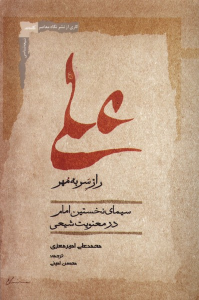 علی
راز سر به مهر
سیمای نخستین امام
در معنویت شیعی
محمدعلی امیرمعزی
ترجمه
محسن